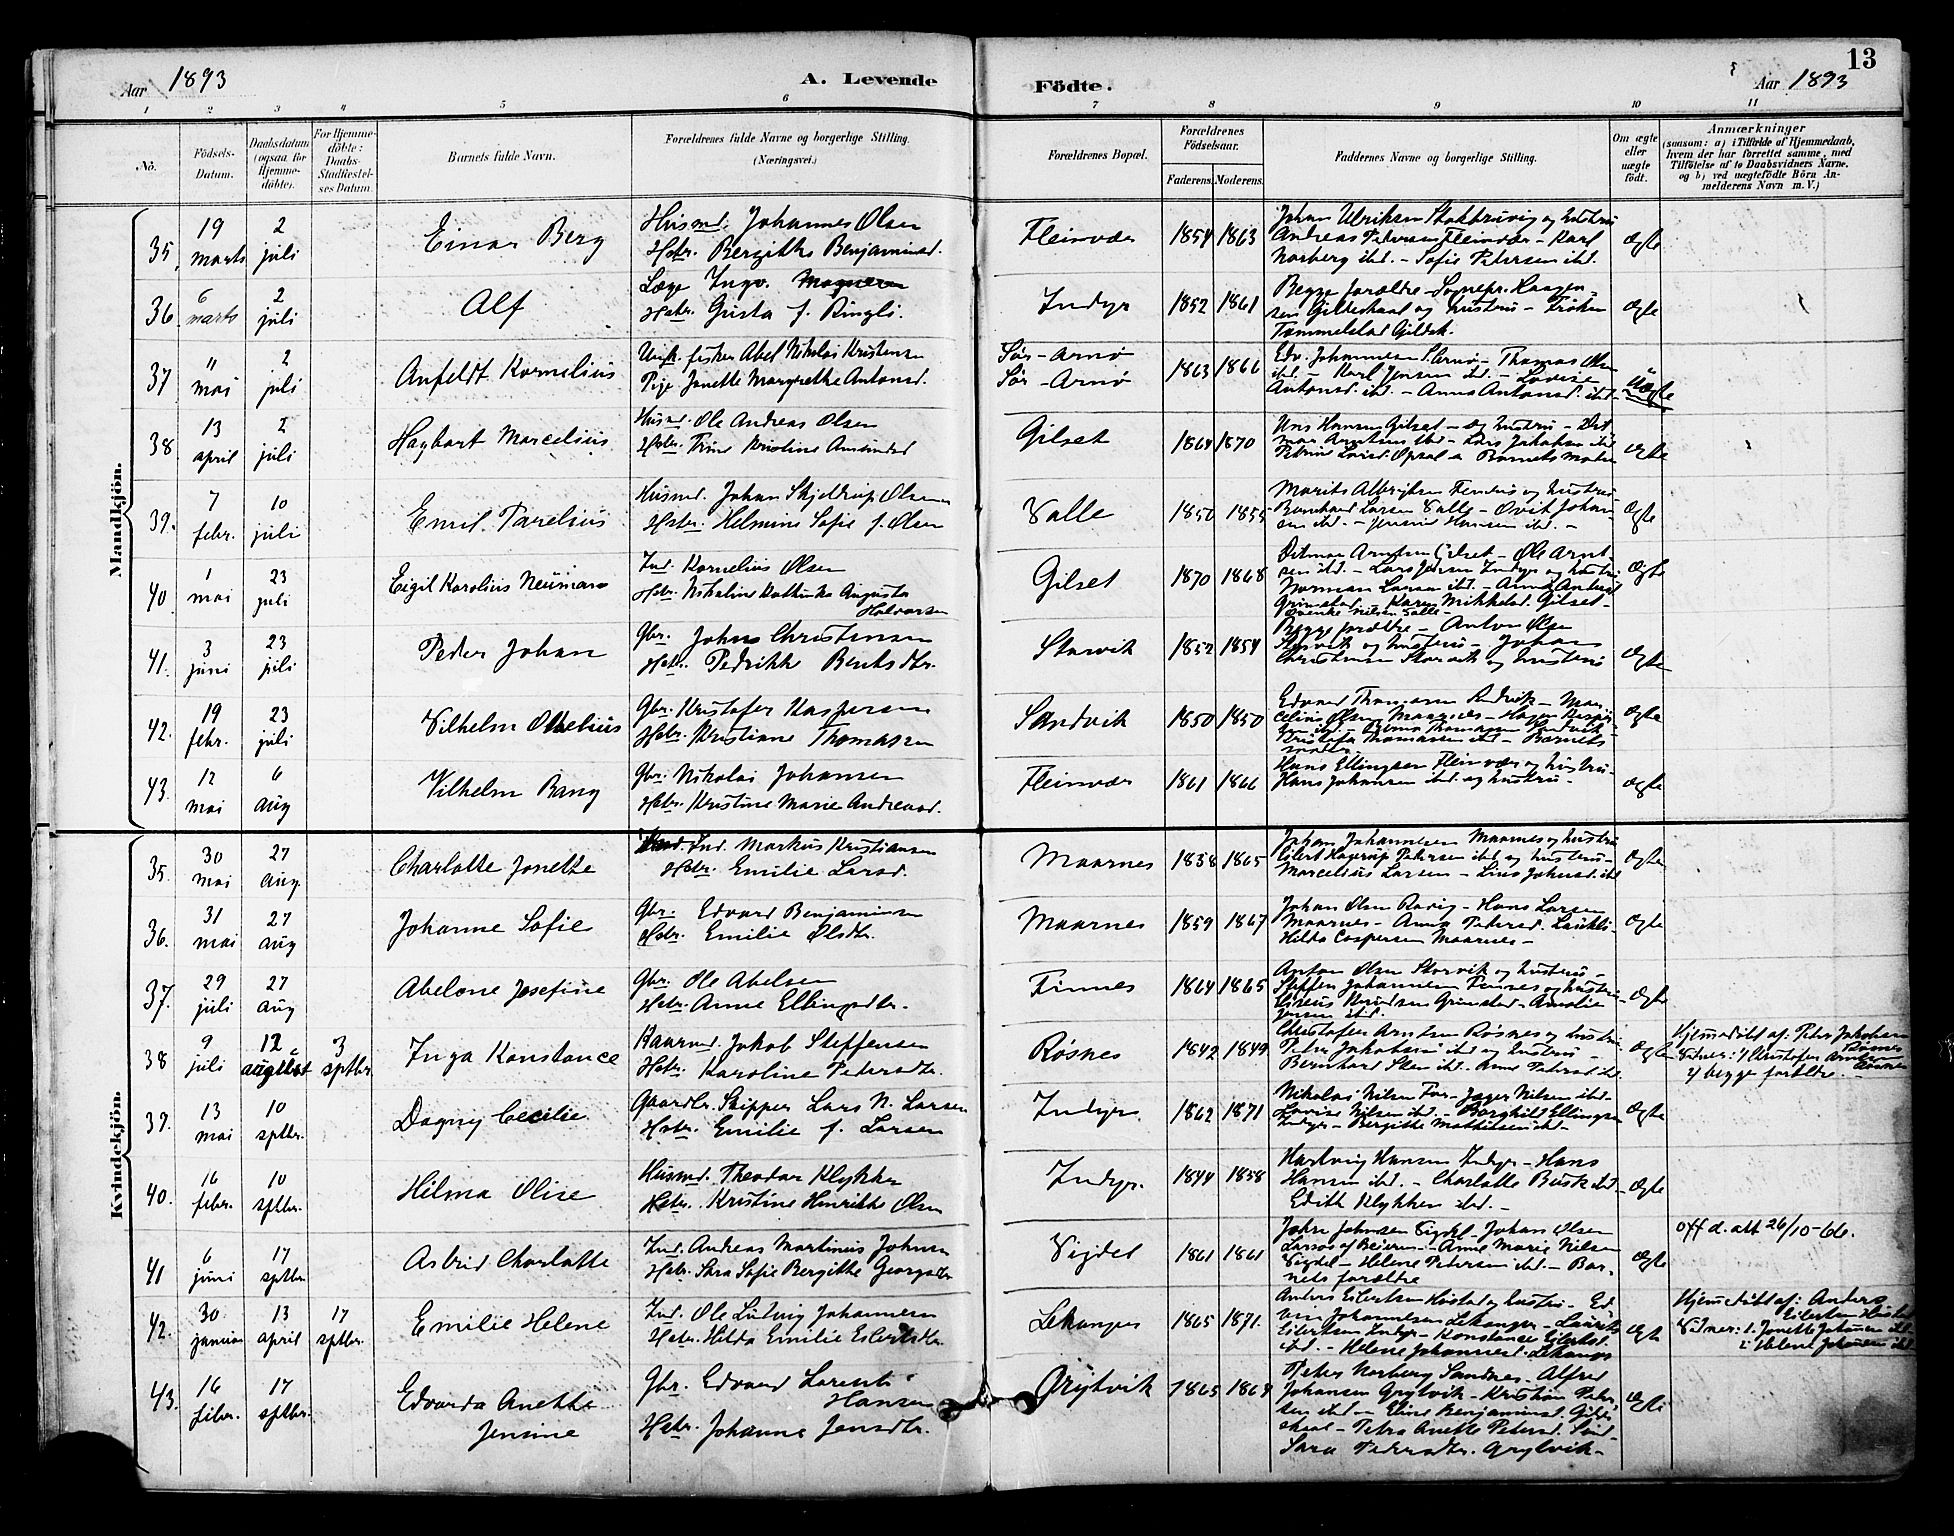 13
Aar 1893
A. Levende
Födte.
Aar 1893
1 2 3 4 5 6 7 8 9 10 11
No.
Födsels-Datum.
Daabsdatum (ogsaa for Hjemme-döbte).
For Hjemme-döbte: Daabs-Stadfæstel-ses Datum.
Barnets fulde Navn.
Forældrenes fulde Navne og borgerlige Stilling. (Næringsvei.)
Forældrenes Bopæl.
Forældrenes Födselsaar.
Faderens. Moderens.
Faddernes Navne og borgerlige Stilling.
Om ægte eller uægte födt.
Anmærkninger
(saasom: a) i Tilfælde af Hjemmedaab, hvem der har forrettet samme, med Tilföielse af to Daabsvidners Navne. og b) ved uægtefödte Börn An-melderens Navn m. V.)
Mandkjön.
35. 19 marts 2 juli Einar Berg
Husmd. Johannes Olsen
Hstr. Bergitha Benjaminsd.
Fleinvær 1854 1863
Johan Ulriksen Stokkvig og hustru
Andreas Petersen Fleinvær - Karl
Norberg ibd. - Sofie Petersen ibd.
Ægte
36 6 marts 2 juli Alf
Læge Ingv.
Hstr. Gusta f. Ringli.
Indyr 1852 1861
Begge forældre - Sognepr. Haagen-
sen Gildeskaal og hustru - Frøken
Tømmelstad Gildsk.
Ægte
37 11 mai 2 juli Anfeldt Kornelius
Ungk. fisker Abel Nikolai Kristensen
Pige Jonette Margrethe Antonsd.
Sør-Arnø
Sør-Arnø 1863 1866
Edv. Johannesen S. Arnø - Thomas Olsen
ibd. - Karl Jensen ibd. - Lovise
Antonsd. ibd. - Anna Antonsd. ibd.
Uægte
38 13 april 2 juli Hagbart Marcelius
Husmd. Ole Andreas Olsen
Hstr. Trine Kristine Amundsd
Gilset 1864 1870
Hansen Gilset - og hustru - Dit
mar Arntsen ibd - Lars Jakobsen ibd
Barnets moder
Ægte
39. 7 febr. 10 juli Emil Parelius
Husmd. Johan Skjeldrup Olsen
Hstr. Helmine Sofie f. Olsen
Valle 1850 1855
Marits Albrigtsen Fenes og hustru
Bernhard Larsen Valle - Johan-
sen ibd. - Hansen ibd. -
Ægte
40 1 mai 23 juli Eigil Karolius Neumann
Ind. Kornelius Olsen
Hstr. Nikoline Kathinka Augusta
Halvorsen
Gilset 1870 1868
Ditmar Arntsen Gilset - Ole Arnt-
sen ibd. - Lars Jensen Indyr og hustru
Norman Larsen ibd. - Anna
Grimstad - Karen Mikkelsd. Gilset -
Nilsen Valle -
Ægte
41. 3 juni 23 juli Peder Johan
Gbr. Johns Christensen
Hstr. Pedrikke Bentsdtr.
Storvik 1852 1854
Begge forældre - Anton Olsen
Storvik og hustru - Johan
Christensen Storvik og hustru
Ægte
42. 19 febr. 23 juli Vilhelm Othelius
Gbr. Kristofer Kaspersen
Hstr. Kristiane Thomasen
Sandvik 1850 1850
Edvard Thomasen Sandvik - Mar-
celius Olsen Maarnes -
Thomassen Sandvik -
Kristofa Thomassen ibd - Barnets
moder
Ægte
43. 12 mai 6 aug Vilhelm Bang
Gbr. Nikolai Johansen
Hstr. Kristine Marie Andreasd.
Fleinvær 1861 1866
Hans Ellingsen Fleinvær og hustru -
Hans Johansen ibd. og hustru -
Ægte
Kvindekjön.
35. 30 mai 27 aug. Charlotte Jonette
Ind. Markus Kristiansen
Hstr. Emilie Larsd.
Maarnes 1838 1865
Johan Johannesen Maarnes og hustru
Eilert Hagerup Petersen ibd og hustru -
Marcelius Larsen - Lina Johnsd. ibd
Ægte
36. 31 mai 27 aug Johanne Sofie
Gbr. Edvard Benjaminsen
Hstr. Emilie Olsdtr.
Maarnes 1859 1867
Johan Olsen - Hans Larsen
Maarnes - Anna Petersd.
Hilda Caspersen Maarnes -
Ægte
37. 29 juli 27 aug Abelone Josefine
Gbr. Ole Abelsen
Hstr. Anne Ellingsdtr.
Finnes 1864 1865
Anton Olsen Storvik og hustru -
Steffen Johannesen Finnes og hustru
Knudsen Grimstad - Amalie
Jensen ibd.
Ægte
38 9 juli 12 august 3 sptbr. Inga Konstance
Kaarmd. Jakob Steffensen
Hstr. Karoline Petersdtr.
Røsnes 1842 1849
Christofer Arntsen Røsnes og hustru
Peter Jakobsen ibd og hustru -
Bernhard Steen ibd. Anne Petersd ibd.
Ægte
Hjemmedøbt af: Peter Jakobsen
Røsnes
Vidner: 1) Kristofer Arntsen
Røsnes
2) begge forældre. -
39. 13 mai 10 sptbr. Dagny Cecilie
Gaardbr. Skipper Lars N. Larsen
Hstr. Emilie f. Larsen
Indyr 1862 1871
Nikolai Nilsen For - Jager Nilsen ibd -
Lovise Nilsen ibd. - Borghild Ellingsen
Indyr - Bergitte Mathisen ibd.
Ægte
40. 16 febr. 10 sptbr. Hilma Olise
Husmd. Theodor Klykken
Hstr. Kristine Henrikke Olsen
Indyr. 1844 1858
Hartvig Hansen Indyr - Hans
Hansen ibd. - Charlotte Busk ibd
Edith Klykken ibd. -
Ægte
41 6 juni 17 sptbr. Astrid Charlotte
Ind. Andreas Martinus Johnsen
Hstr. Sara Sofie Bergitte Georgsdtr
Vigdel 1861 1861
John Johnsen Vigdel - Johan Olsen
Larsos af Beieren - Anne Marie Nilsen
Vigdel - Helene Petersen ibd. - Bar-
nets forældre
Ægte
Off. d. att 26/10-66.
42. 30 januar 13 april 17 sptbr. Emilie Helene
Ind. Ole Ludvig Johannesen
Hstr. Hilda Emilie Eilertsdtr
Lekanger 1865 1871.
Anders Eilertsen Høstad og hustru - Ed
vin Johannesen Lekanger - Laurits
Eilertsen Indyr - Konstanse Eilertsd.
ibd. - Helene Johannesd. Lekanger
Ægte
Hjemmedøbt af: Anders
Eilertsen Høstad
Vidner: 1. Jonette Johansen ibd.
2. Helene Johansen ibd.
43. 16 febr. 17 sptbr. Edvarda Anette
Jensine
Gbr. Edvard Lorents
Hansen
Hstr. Johanne Jensdtr.
Grytvik 1865 1864
Peter Norberg Sandnes - Alfred
Johansen Grytvik - Kristian Peter-
sen ibd - Eline Benjaminsd. Gildes
kaal - Petra Anette Petersd. Sund
Sara Pedersdtr. Grytvik -
Ægte